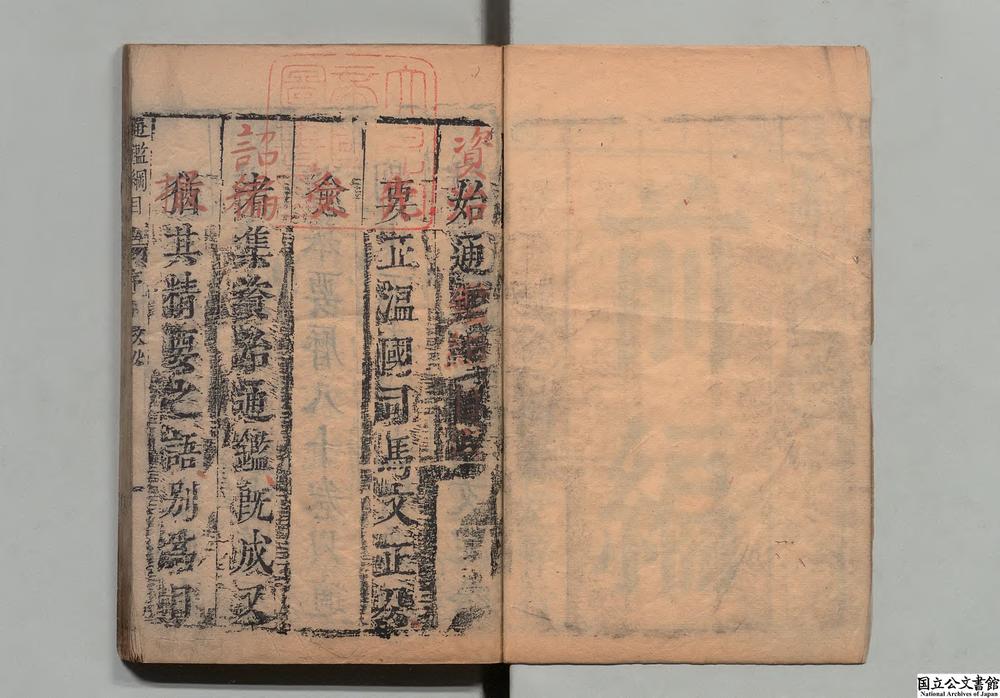 大日本
帝國
圖書印
資治通鑑綱目
先正溫國司馬文正公
受
詔編集資治通鑑既成又
撮其精要之語別爲目
通鑑綱目
國立公文書館
National Archives of Japan